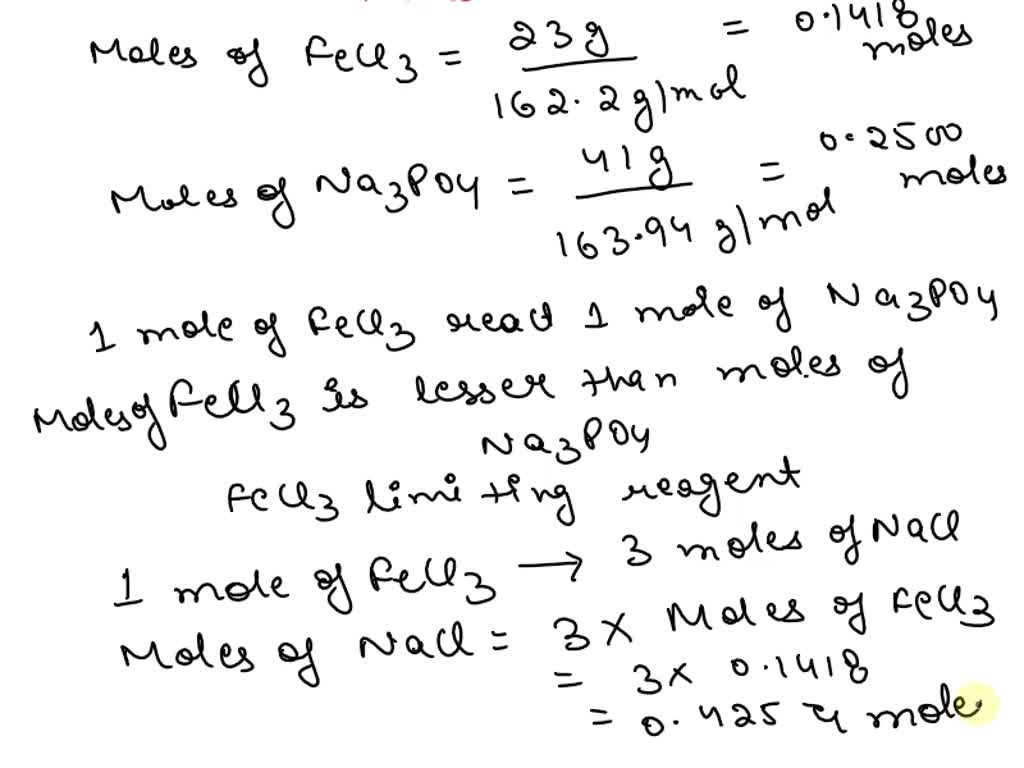 Moles of FeCl3 = 23g / 162.2g/mol = 0.1418 moles
Moles of Na3PO4 = 41g / 163.94 g/mol = 0.2500 moles
1 mole of FeCl3 react 1 mole of Na3PO4
Moles of FeCl3 is lesser than moles of
Na3PO4
FeCl3 limiting reagent
1 mole of FeCl3 → 3 moles of NaCl
Moles of NaCl = 3 × Moles of FeCl3
= 3 × 0.1418
= 0.4254 mole